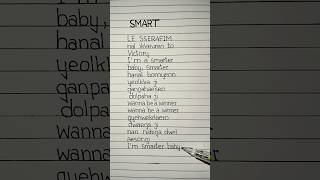 SMART
LE SSERAFIM
nal ikkeuran to
Victory
I'm a smarter
baby, smarter
hanal bomyeon
yeolkwa ji
ganpahaesen
dolpaha ji
wanna be a winner
wanna be a winner
quehwekdaero
dwaega ji
nan nabiga dwel
aesong
I'm smarter baby